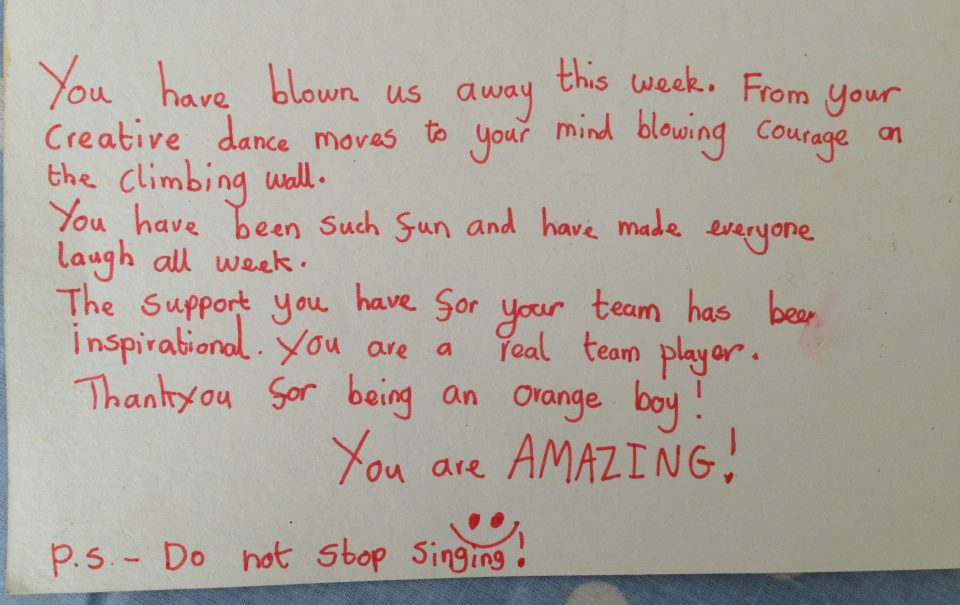 You have blown us away this week. From your
creative dance moves to your mind blowing courage on
the climbing wall.
You have been such fun and have made everyone
laugh all week.
The support you have for your team has been
inspirational. You are a real team player.
Thankyou for being an orange boy!
You are AMAZING!
P.S. - Do not stop singing!